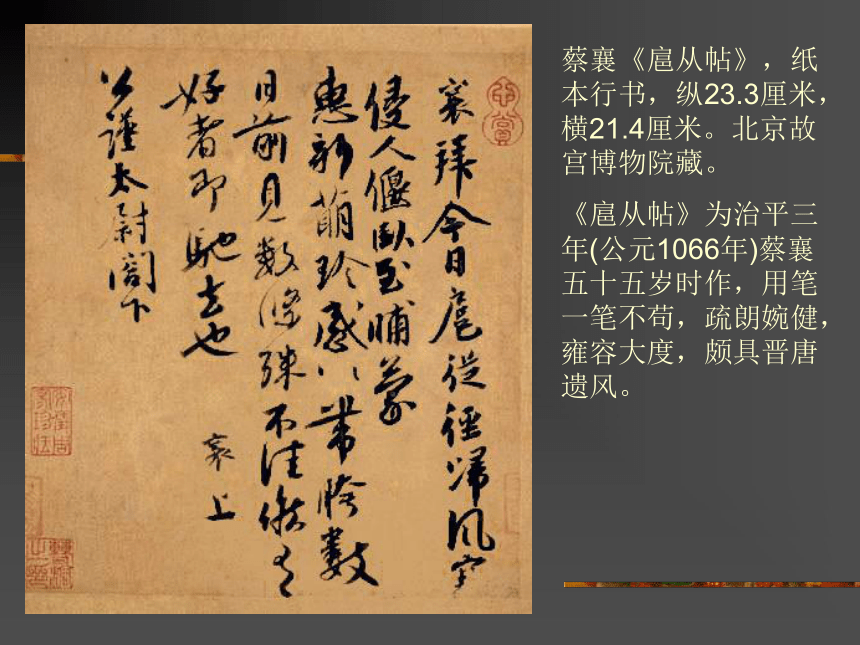 襄拜今日扈從徑歸風字
侵人偃臥至晡蒙
惠新萌珍感珍感帶胯數
日前見數條殊不佳候有
好者即馳去也
襄上
公謹太尉閤下
蔡襄《扈从帖》，纸
本行书，纵23.3厘米，
横21.4厘米。北京故
宫博物院藏。
《扈从帖》为治平三
年(公元1066年)蔡襄
五十五岁时作，用笔
一笔不苟，疏朗婉健，
雍容大度，颇具晋唐
遗风。